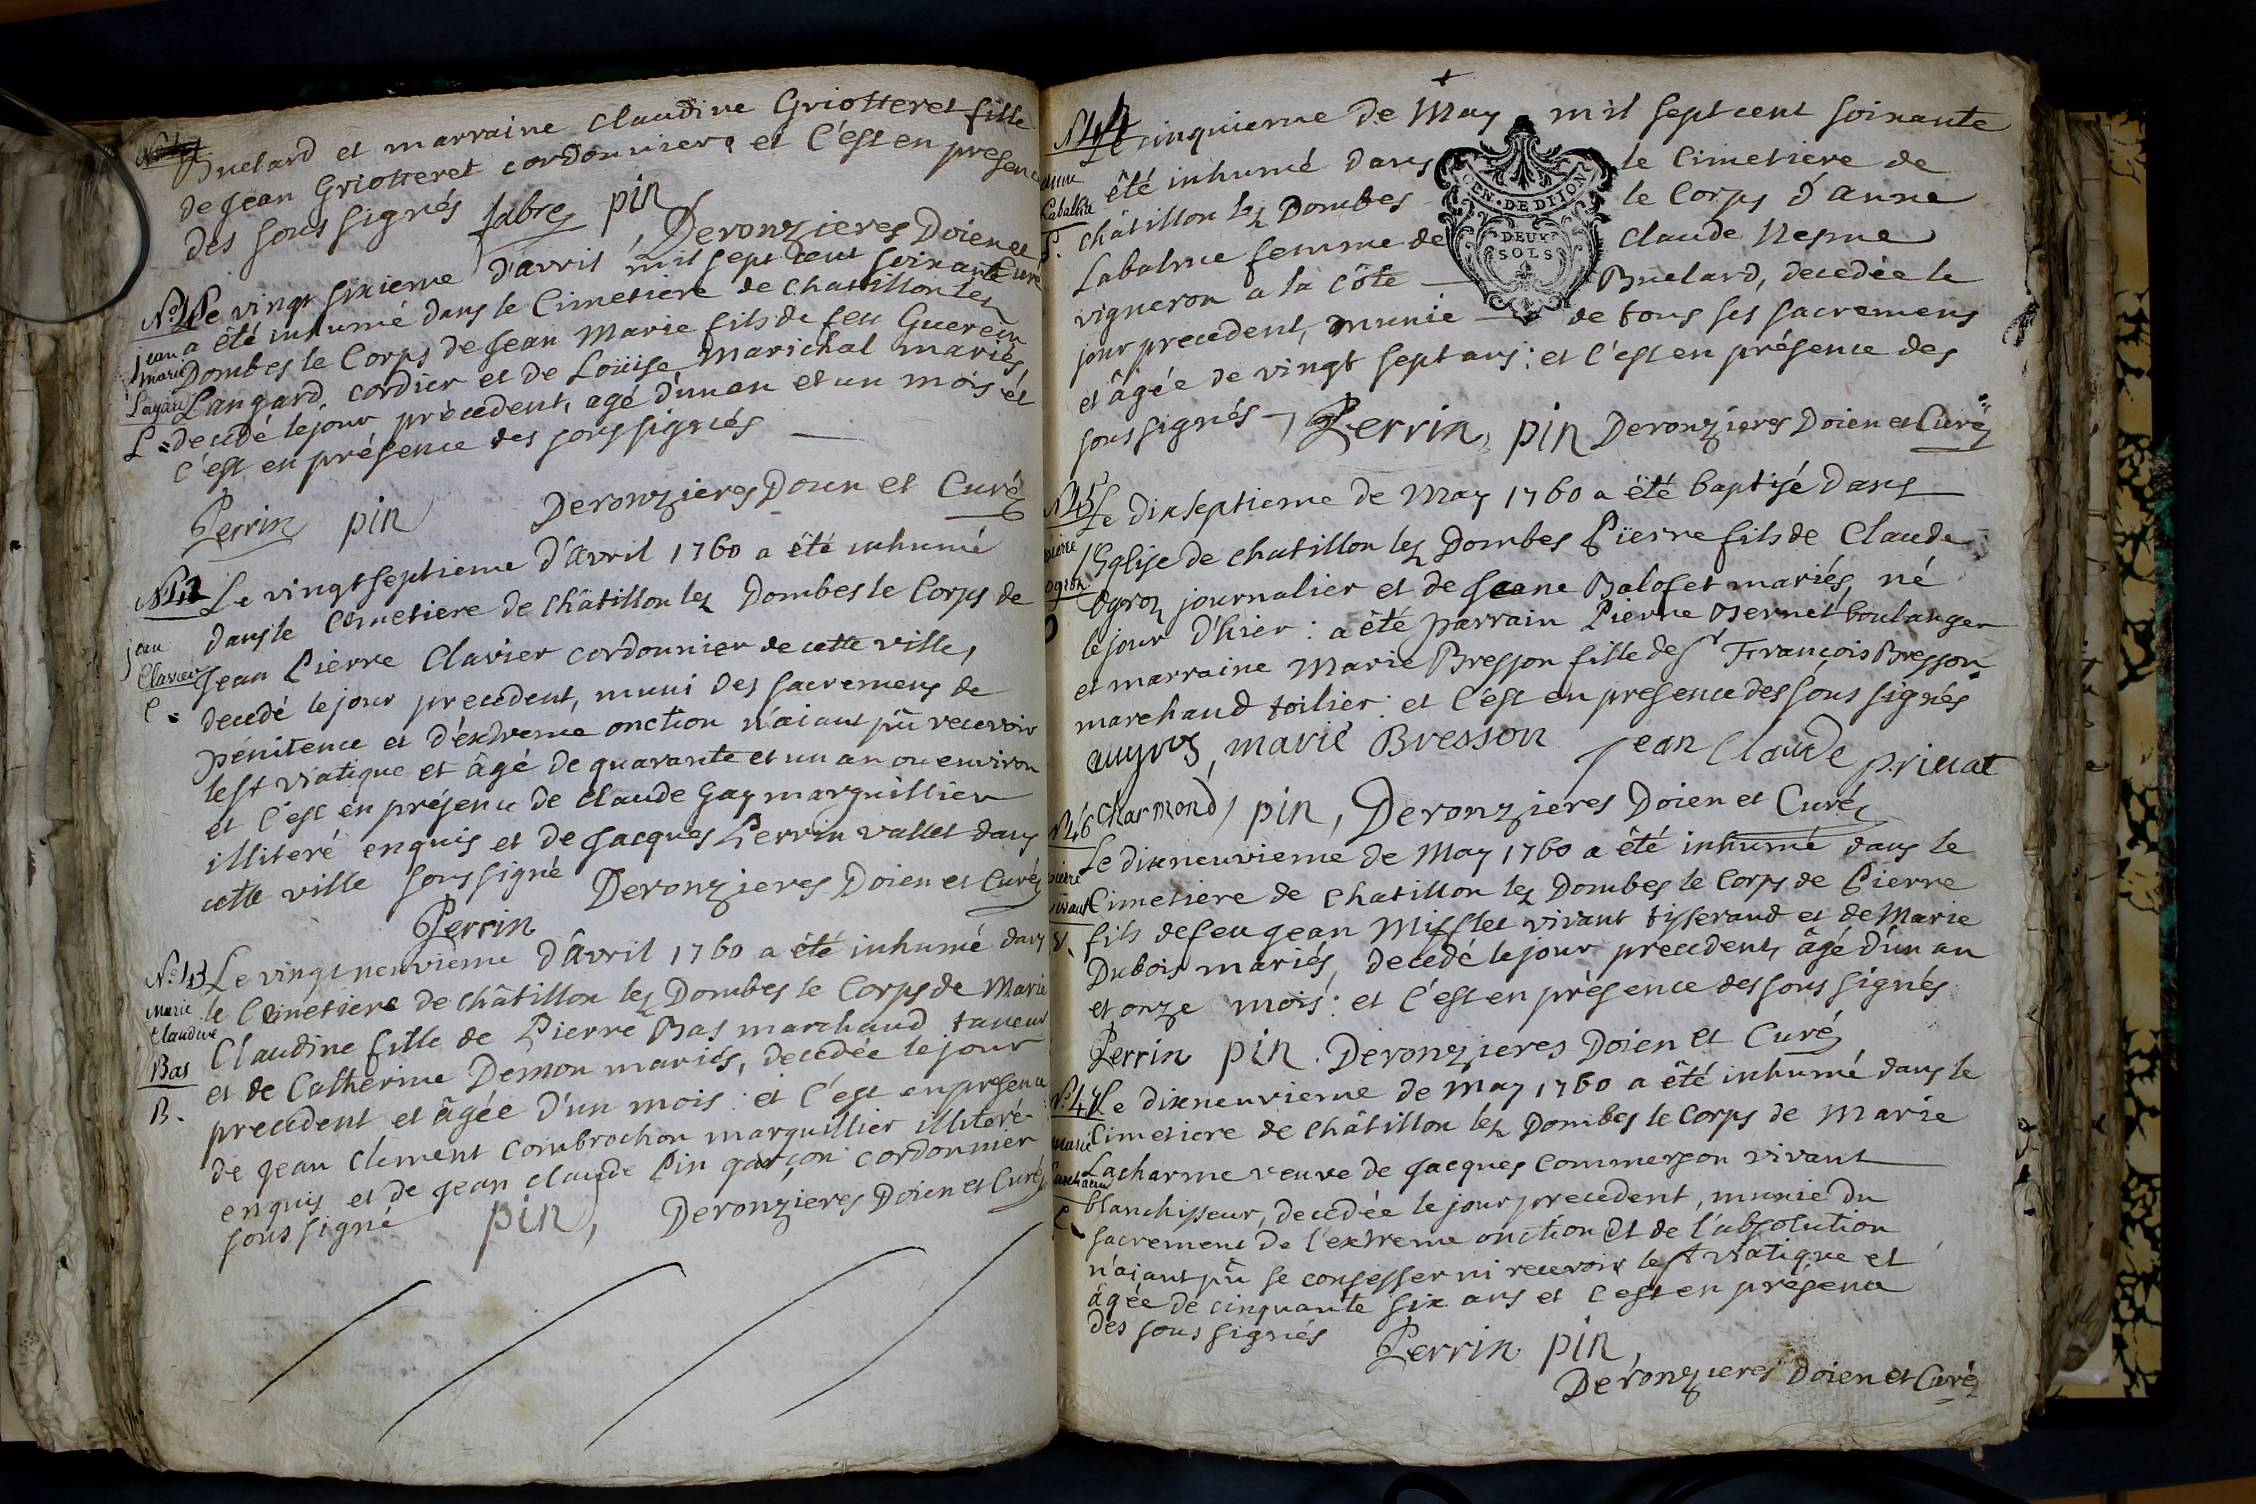 Buelard et marraine Claudine Griotteret fille
de Jean Griotteret cordonnier et c'est en presence
des sous signés fabre pin
Deronzieres Doien et Curé
Le vingt sixieme d'avril mil sept cent soixante
jean a été inhumé dans le Cimetiere de Chatillon les
marie Dombes le Corps de Jean Marie fils de feu Guerein
Langard cordier et de Loüise Marichal mariés
L. decedé le jour précedent, agé d'un an et un mois et
c'est en présence des sous signés
Perrin pin Deronzieres Doien et Curé
N 42 Le vingt septieme d'avril 1760 a été inhumé
jean dans le Cimetiere de Châtillon lez Dombes le Corps de
Clavier Jean Pierre Clavier cordonnier de cette ville,
C. decedé le jour precedent, muni des sacremens de
pénitence et d'éxtreme onction n'aiant pû recevoir
le st viatique et âgé de quarante et un an ou environ
et c'est en présence de Claude Gay marguillier
illiteré enquis et de Jacques Perrin vallet dans
cette ville sous signé Deronzieres Doien et Curé
Perrin
N° 43 Le vingt neuvieme d'Avril 1760 a été inhumé dans
Marie le Cimetiere de Châtillon lez Dombes le Corps de Marie
Claudine Claudine fille de Pierre Bas marchand taneur
Bas et de Catherine Demon mariés, decedée le jour
B. precedent et âgée d'un mois : et c'est en presence
de Jean Clement Combrochon marguillier illiteré
enquis et de Jean Claude Pin garçon cordonnier
sous signé pin, Deronzieres Doien et Curé
N 44 Le cinquieme de May mil sept cent soixante
été inhumé dans le Cimetiere de
Châtillon lez Dombes le Corps d'anne
Labalme femme de Claude Nesme
vigneron a la côte Buelard, decedée le
jour precedent, munie de tous ses sacremens
et âgée de vingt sept ans : et c'est en présence des
sous signés Perrin, pin Deronzieres Doien et Curé
GEN. DE DIJON
DEUX
SOLS
N 45 Le dix septieme de May 1760 a été baptisé dans
l'Eglise de Chatillon lez Dombes Pierre fils de Claude
Ogroz journalier et de Jeane Balofet mariés, né
le jour d'hier : a été parrain Pierre Vernet boulanger
et marraine Marie Bresson fille de sr François Bresson
marchand toilier : et c'est en presence des sous signés
marie Bresson Jean Claude privat
Charmond pin, Deronzieres Doien et Curé
N 46
Le dixneuvieme de May 1760 a été inhumé dans le
Cimetiere de Chatillon lez Dombes le Corps de Pierre
fils de feu Jean Mifflet vivant tisserand et de Marie
Dubois mariés, decedé le jour precedent, âgé d'un an
et onze mois : et c'est en présence des sous signés
Perrin pin. Deronzieres Doien et Curé
N° 47 Le dixneuvieme de May 1760 a été inhumé dans le
Cimetiere de Châtillon lez Dombes le Corps de Marie
Lacharme veuve de Jacques Commerson vivant
blanchisseur, decedée le jour precedent, munie du
sacrement de l'extreme onction et de l'absolution
n'aiant pû se confesser ni recevoir le st viatique et
âgée de cinquante six ans et c'est en présence
des sous signés Perrin pin,
Deronzieres Doien et Curé